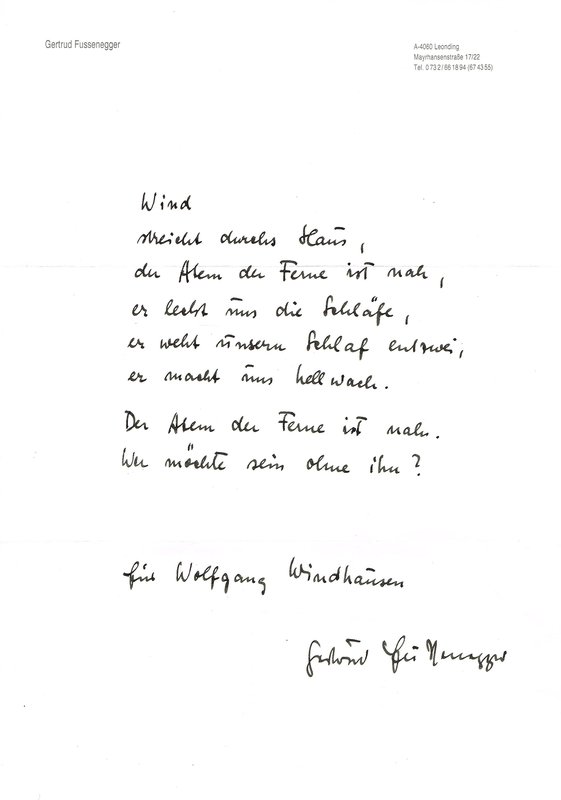 Gertrud Fussenegger
A-4060 Leonding
Mayrhansenstraße 17/22
Tel. 0 73 2 / 66 18 94 (67 43 55)
Wind
streicht durchs Haus,
der Atem der Ferne ist nah,
er leckt uns die Schläfe,
er weht unsern Schlaf entzwei,
er macht uns hellwach.
Der Atem der Ferne ist nah.
Wer möchte sein ohne ihn?
für Wolfgang Windhausen
Gertrud Fussenegger